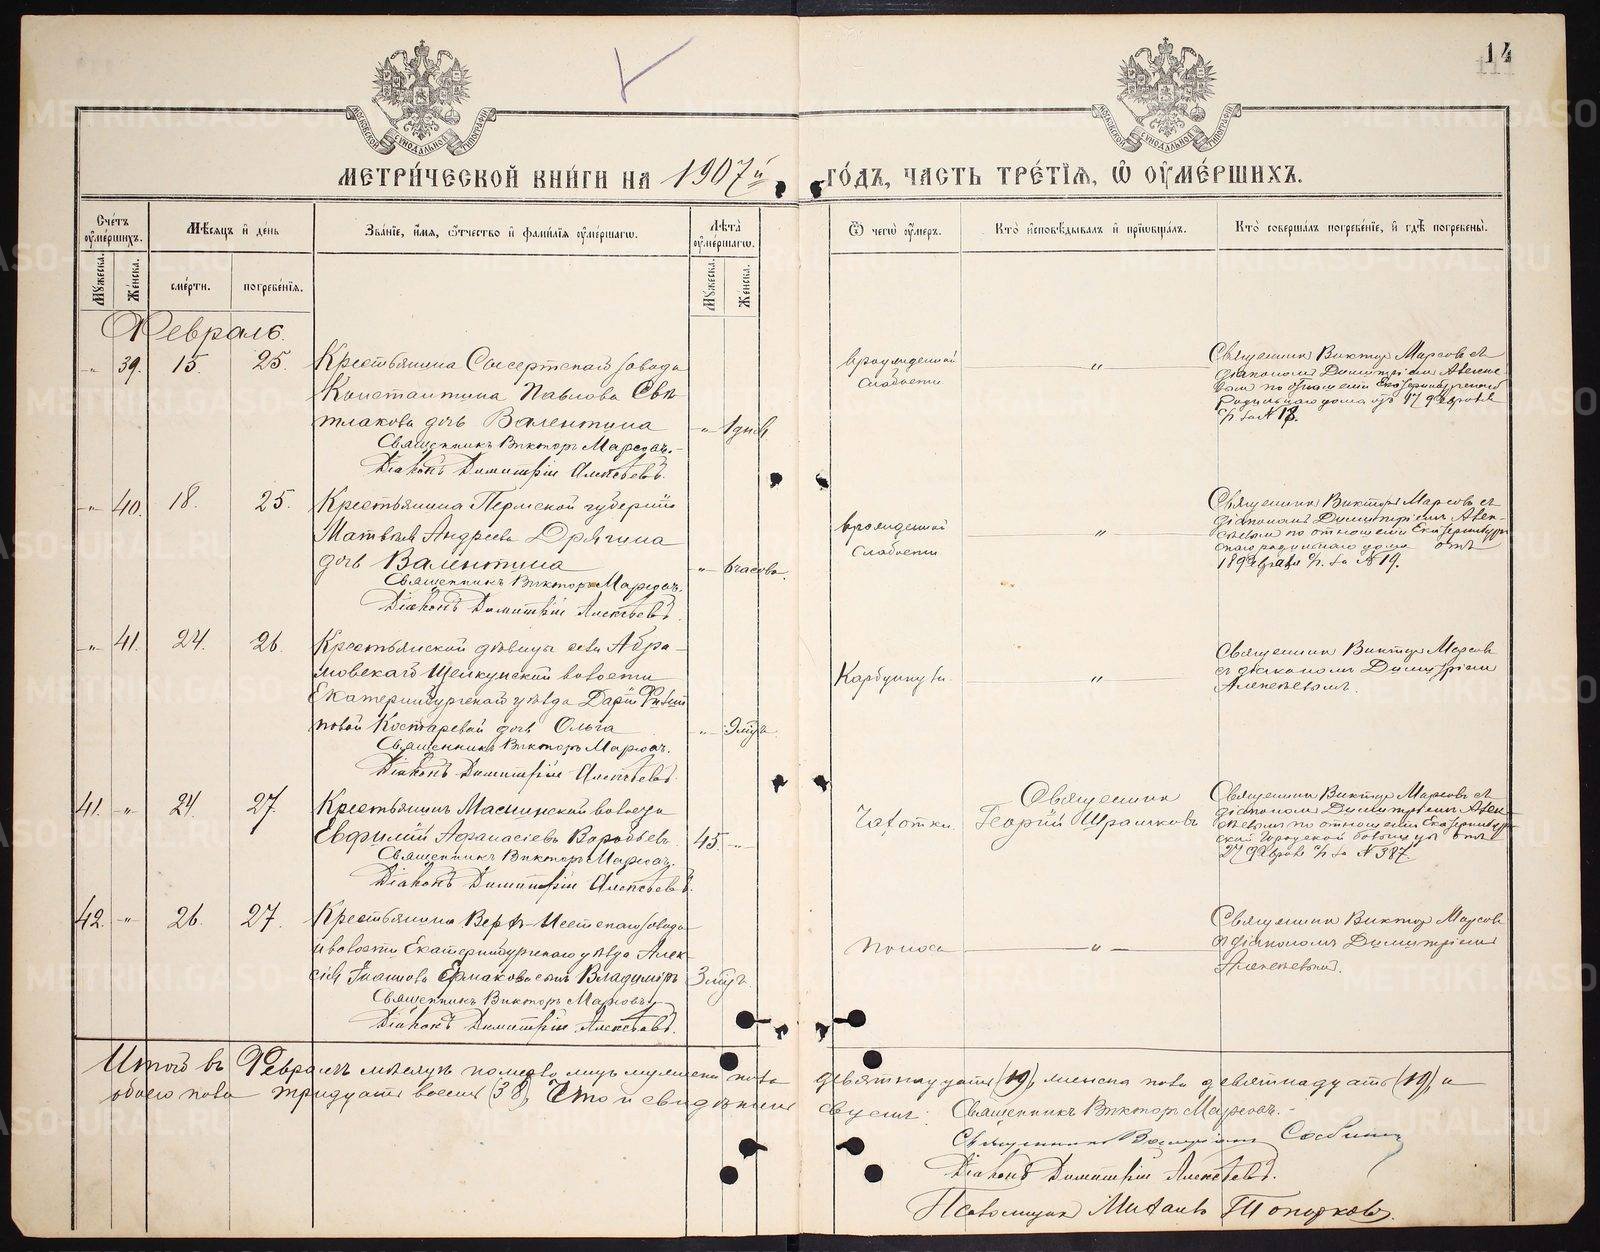 14
МОСКОВСКОЙ СѴНОДАЛЬНОЙ ТИПОГРАФІИ
МОСКОВСКОЙ СѴНОДАЛЬНОЙ ТИПОГРАФІИ
МЕТРИ́ЧЕСКОЙ КНИ́ГИ НА 1907й ГО́ДЪ, ЧАСТЬ ТРЕ́ТІѦ, Ѡ ОУ҆МЕ́РШИХЪ.
Сче́тъ оу҆ме́ршихъ.
Мѣ́сяцъ и҆ де́нь
Зва́нїе, и҆́мя, ѻ҆́тчество и҆ фами́лїя оу҆ме́ршагѡ.
Лѣ́та оу҆ме́ршагѡ.
Ѿ чегѡ̀ оу҆́меръ.
Кто̀ и҆сповѣ́дывалъ и҆ прїѡбща́лъ.
Кто̀ соверша́лъ погребе́нїе, и҆ гдѣ̀ погребены̀.
Мꙋ́жеска.
Же́нска.
сме́рти.
погребе́нїя.
Мꙋ́жеска.
Же́нска.
Февраль.
-„- 39. 15. 25. Крестьянина Сысертскаго завода
Константина Павлова Свѣ-
тлакова дочь Валентина -„- 1 дней
Священникъ Викторъ Марсовъ.
Діаконъ Димитрій Алексѣевъ.
врожденной
слабости
„
Священник Виктор Марсовъ съ
діаконом Димитріем Алексѣе-
вым по отношенію Екатеринбургскаго
Родильнаго дома отъ 17 февраля
с/г за № 18.
-„- 40. 18. 25. Крестьянина Пермской губерніи
Матвѣя Андреева Дрягина
дочь Валентина -„- 6 часовъ.
Священникъ Викторъ Марсовъ.
Діаконъ Димитрій Алексѣевъ.
врожденной
слабости
„
Священник Виктор Марсовъ съ
діаконом Димитріем Алек-
сѣевым по отношенію Екатеринбург-
скаго родильнаго дома отъ
18 февраля с/г. за № 19.
-„- 41. 24. 26. Крестьянской дѣвицы села Абра-
мовскаго Щелкунской волости
Екатеринбургскаго уѣзда Дарьи Филип-
повой Костаревой дочь Ольга -„- 9 мѣс.
Священникъ Викторъ Марсовъ.
Діаконъ Димитрій Алексѣевъ.
„
Священник Виктор Марсов
съ діаконом Димитріем
Алексѣевымъ.
41. -„- 24. 27. Крестьянинъ волости
Евфимій Афанасіевъ Воробьевъ 45. -„-
Священникъ Викторъ Марсовъ.
Діаконъ Димитрій Алексѣевъ.
Чахотки.
Священник
Георгій
Священник Виктор Марсовъ съ
діаконом Димитріем Алек-
сѣевым по отношенію Екатеринбург-
ской Городской больницы отъ
27 февраля с/г за № 387
42. -„- 26. 27. Крестьянина Верх-Исетскаго завода
и волости Екатеринбургскаго уѣзда Алек-
сѣя Іоаннова Ермакова сынъ Владиміръ 3 мѣс.
Священникъ Викторъ Марсовъ
Діаконъ Димитрій Алексѣевъ.
поноса
„
Священник Виктор Марсов
с діаконом Димитріем
Алексѣевым.
Итого въ Февралѣ мѣсяцѣ померло лицъ мужеска пола девятнадцать (19), женска пола девятнадцать (19), а
обоего пола тридцать восемь (38). Что и свидѣтельствуемъ: Священникъ Викторъ Марсовъ.
Священник
Діаконъ Димитрій Алексѣевъ.
Псаломщик Михаилъ Топорковъ.
METRIKI.GASO-URAL.RU